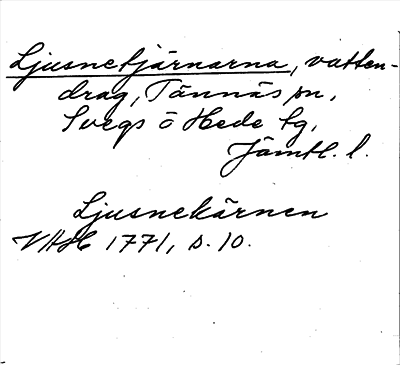 Ljusnetjärnarna, vatten-
drag, Tännäs sn,
Svegs o Hede tg,
Jämtl. l.
Ljusnekärnen
VAH 1771, s. 10.